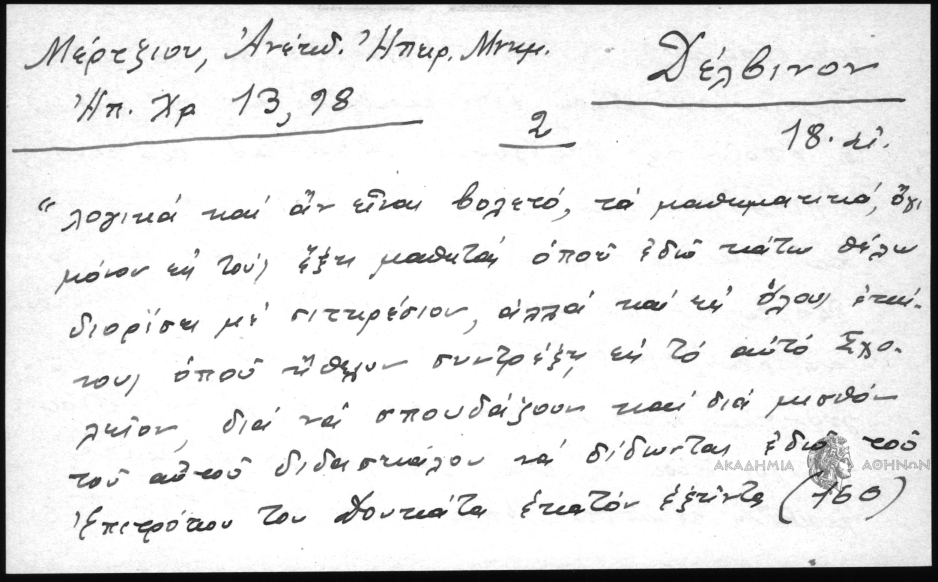 Μέρτζιου, Ἀνέκδ. Ἠπειρ. Μνημ.
Δέλβινον
Ἠπ. Χρ 13, 98
2
18. αἰ.
“ λογικά καί ἄν εἶναι βολετό, τά μαθηματικά, ὄχι
μόνον εἰς τούς ἕξη μαθητάς ὁποῦ ἐδῶ κάτω θέλω
διορίσει μέ σιτηρέσιον, ἀλλά καί εἰς ὅλους ἐκεί-
νους ὁποῦ ἤθελον συντρέξη εἰς τό αὐτό Σχο-
λεῖον, διά νά σπουδάζουν καί διά μισθόν
τοῦ αὐτοῦ διδασκάλου νά δίδωνται ἐδῶ τοῦ
ἐπιτρόπου του δουκάτα ἑκατόν ἑξήντα (160)
ΑΚΑΔΗΜΙΑ ΑΘΗΝΩΝ